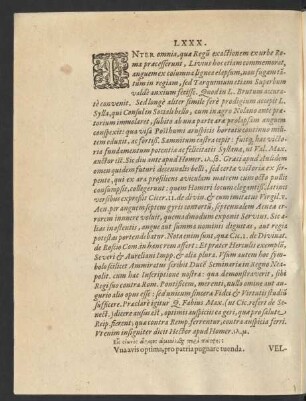 LXXX.
INTER omnia, quæ Regũ exactionem ex urbe Ro-
mæ præcesserunt, Livius hoc etiam commemorat,
anguem ex columna lignea elapsum, non fugam tã-
tum in regiam, sed Tarquinium etiam Superbum
valdè anxium fecisse. Quod in L. Brutum accura-
tè convenit. Sed longè aliter simile ferè prodigium accepit L.
Sylla, qui Consul in Sociali bello, cum in agro Nolano ante præ-
torium immolaret, subitò ab una parte aræ prolapsum anguem
conspexit: qua visa Posthumi aruspicis hortatu continuò mili-
tem eduxit, ac fortiss. Samnitum castra cepit: factaq́; hæc victo-
ria fundamentum potentiæ ac felicitatis Syllanæ, ut Val. Max.
auctor est. Sic diu ante apud Homer. Græci apud Aulidem
omen quidem futuri detestati belli, sed certæ victoriæ ex ser-
pente, qui ex ara progressus aviculam matrem cum octo pullis
consumpsit, collegerunt: quem Homeri locum elegantiss. latinis
versibus expressit Cicer. 11. de divin. & cum imitatus Virgil. v.
Æn. per anguem septem gyris contortũ, septennalem Æneæ er-
rorem innuere voluit, quemadmodum exponit Servius. Sic a-
lias in astentis, angues aut summa numinis dignitas, aut regia
potestas portendebatur. Notæ enim sunt, quæ Cic. 1. de Divinat.
de Roscio Com. in hanc rem affert: Et præter Herculis exemplũ,
Severi & Aureliani Impp. & alia plura. Usum autem hoc sym-
bolo scilicet Ammiratus scribit Ducẽ Seminariæ in Regno Nea-
polit. cum hac Inscriptione nostra: qua demonstraverit, sibi
Regis so contra Rom. Pontificem, merenti, nulla omine aut au-
gurio alio opus esse: sed animum sincera Fides & Virtutis studiũ
sufficere. Præclarè igitur Q. Fabius Max. (ut Cic. refert de Senec-
) dicere ausus est, optimis auspiciis ea geri, quæ pro salute
Reip. ferent: quæ contra Remp. ferrentur, contra auspicia ferri.
Ut enim insigniter dicit Hector apud Homer.
Εἷς οἰωνὸς ἄριστος ἀμύνεσθαι περὶ πάτρης:
Una avis optima, pro patria pugnare tuenda.
VEL-